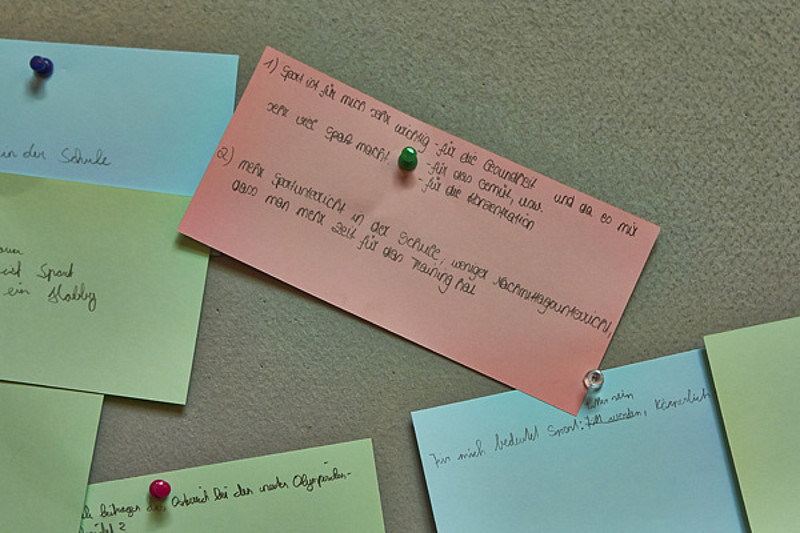 in der Schule
ist Sport
ein Hobby
1) Sport ist für mich sehr wichtig - für die Gesundheit und da es mir
sehr viel Spaß macht. - für das Gemüt, usw.
- für die Konzentration
2) mehr Sportunterricht in der Schule, weniger Nachmittagsunterricht,
dass man mehr Zeit für das Training hat
Für mich bedeutet Sport: Fit werden, Körperlich
Österreich bei den Olympischen-